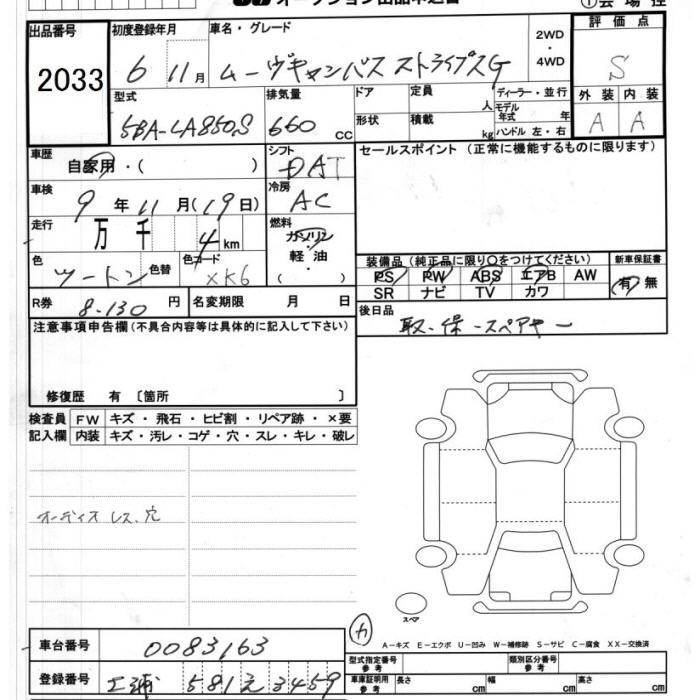 出品番号 2033
初度登録年月 6 11月
車名・グレード ムーヴキャンバス ストライプスG
2WD・4WD
評価点 S
外装 A 内装 A
型式 5BA-LA850S
排気量 660 cc
ドア 形状
定員 人 積載 kg
ディーラー・並行
モデル年式 年
ハンドル 左・右
車歴 自家用・( )
シフト DAT
セールスポイント (正常に機能するものに限ります)
車検 9年11月(19日)
冷房 AC
走行 万 千 4 km
燃料 ガソリン・軽油・( )
色 ツートン 色替
色コード XK6
装備品(純正品に限り○をつけてください)
PS PW ABS エアB AW
SR ナビ TV カワ
新車保証書 有 無
R券 8-130 円
名変期限 月 日
後日品 取-保-スペアキー
注意事項申告欄(不具合内容等は具体的に記入して下さい)
修復歴 有 〔箇所 〕
検査員記入欄
FW キズ・飛石・ヒビ割・リペア跡・×要
内装 キズ・汚レ・コゲ・穴・スレ・キレ・破レ
オーディオレス、穴
スペア
A-キズ E-エクボ U-凹み W-補修跡 S-サビ C-腐食 XX-交換済
車台番号 0083163
型式指定番号 参考
類別区分番号 参考
登録番号 581え3459
車庫証明用 参考 長さ cm 幅 cm 高さ cm